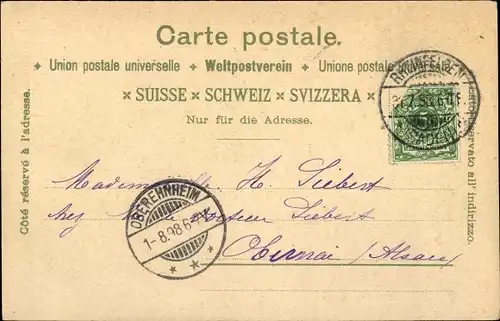 Carte postale.
✦ Union postale universelle ✦ Weltpostverein ✦ Unione postale universale ✦
× SUISSE × SCHWEIZ × SVIZZERA ×
Nur für die Adresse.
Côté réservé à l'adresse.
Lato riservato all' indirizzo.
RHEINFELDEN
(BADEN)
Mademoiselle H. Siebert
chez Monsieur Docteur Siebert
Obernai (Alsace)
OBEREHNHEIM
1-8.98.6-7V.